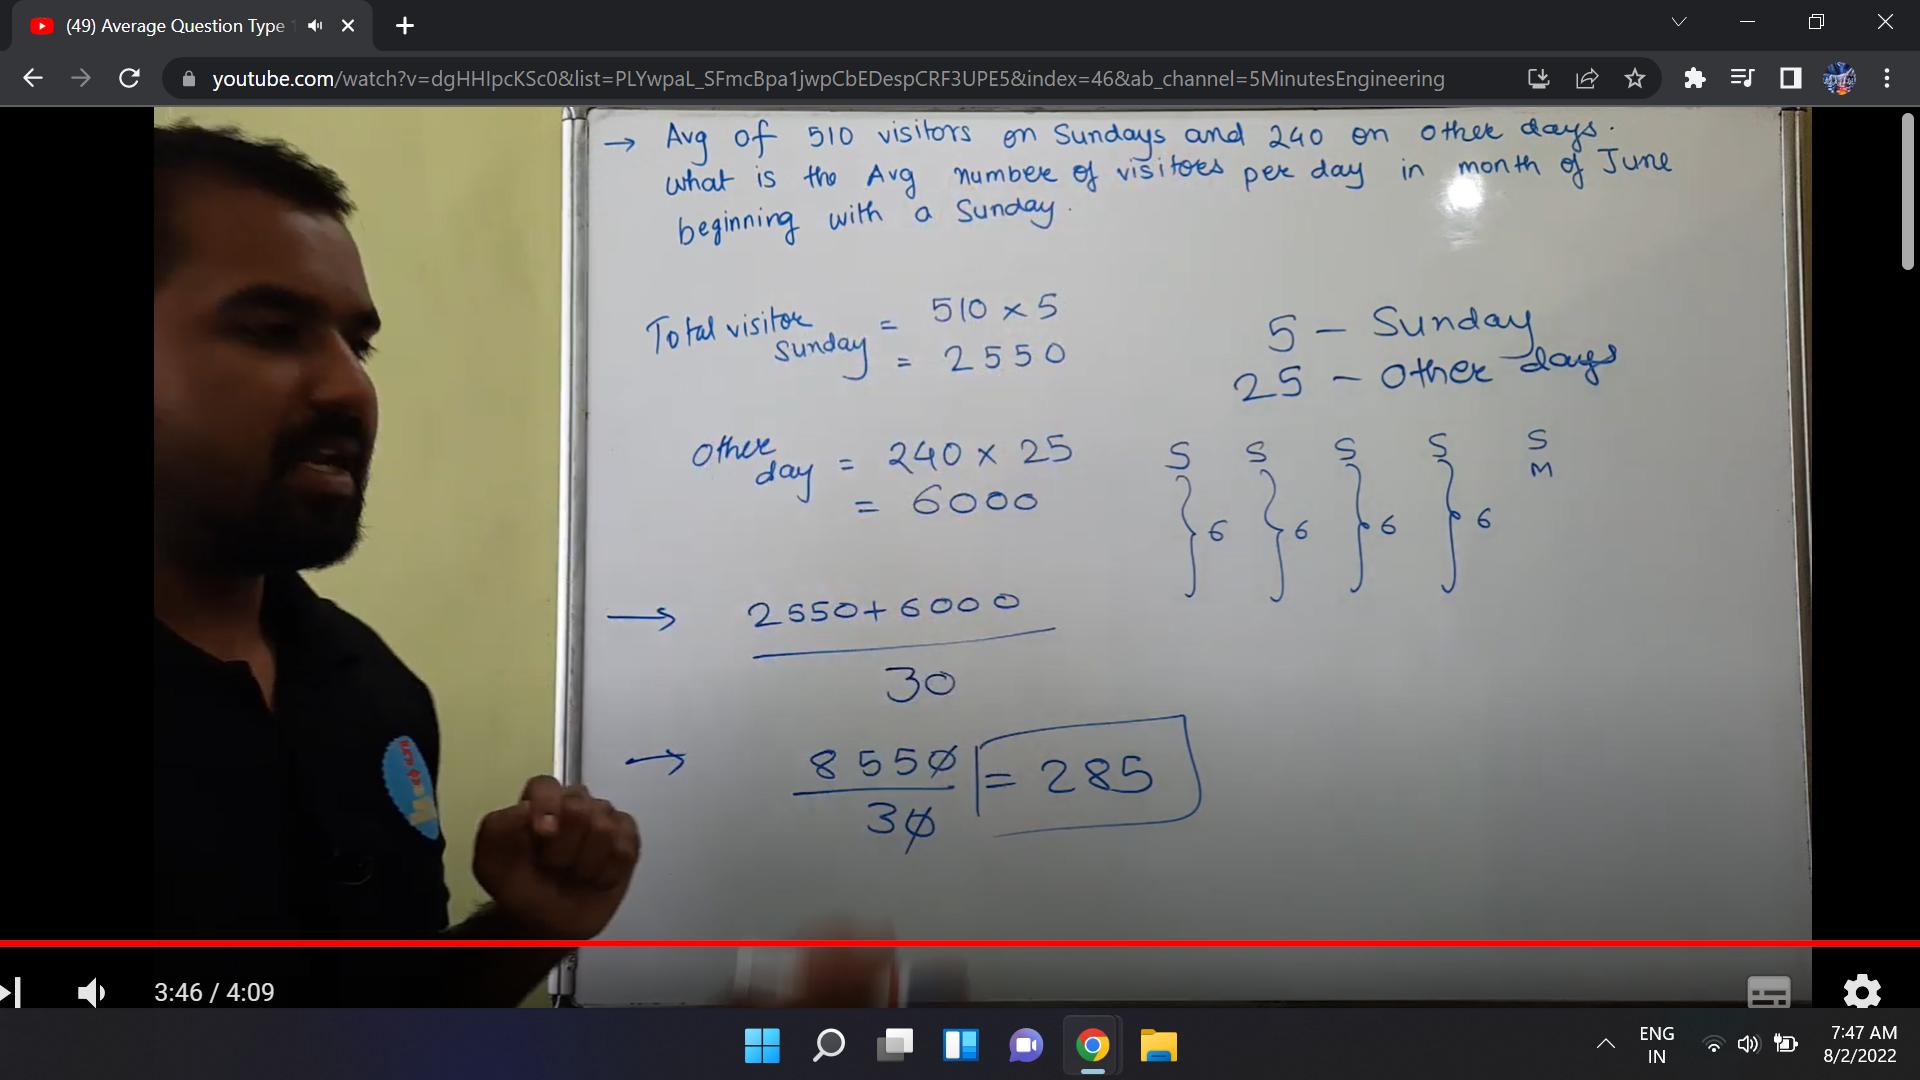 (49) Average Question Type
youtube.com/watch?v=dgHHIpcKSc0&list=PLYwpaL_SFmcBpa1jwpCbEDespCRF3UPE5&index=46&ab_channel=5MinutesEngineering
→ Avg of 510 visitors on Sundays and 240 on other days.
what is the Avg number of visitors per day in month of June
beginning with a Sunday.
Total visitor
sunday
= 510 × 5
= 2550
5 – Sunday
25 – Other days
Other
day
= 240 × 25
= 6000
S S S S S
M
6 6 6 6
→ 2550+6000
30
→ 8550
30
= 285
3:46 / 4:09
ENG
IN
7:47 AM
8/2/2022